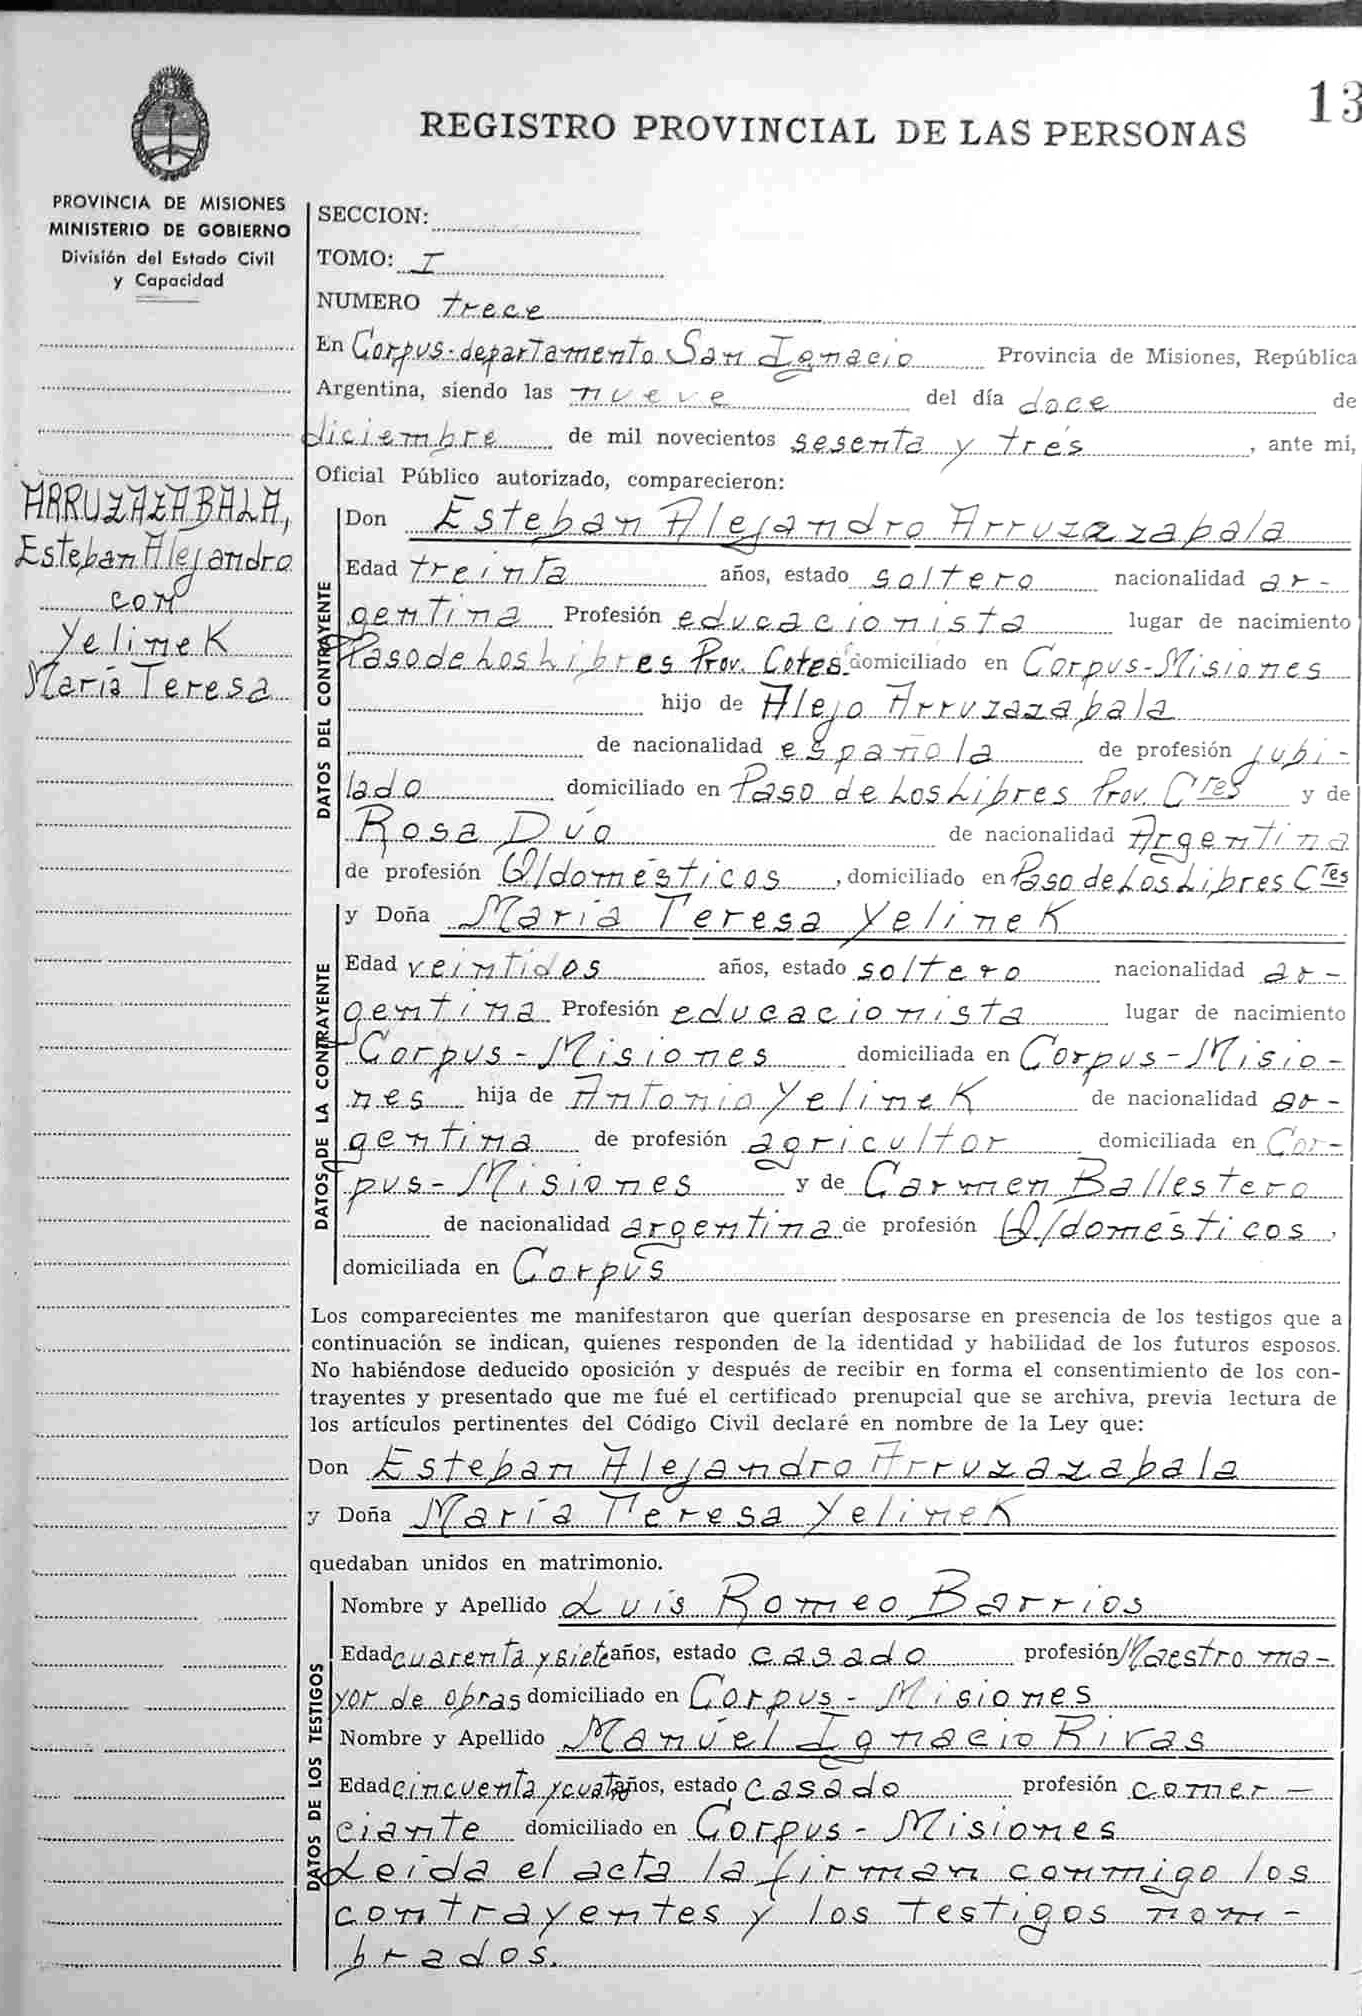 13
REGISTRO PROVINCIAL DE LAS PERSONAS
PROVINCIA DE MISIONES
MINISTERIO DE GOBIERNO
División del Estado Civil
y Capacidad
ARRUZAZABALA,
Esteban Alejandro
con
Yelinek
María Teresa
SECCION:
TOMO: I
NUMERO trece
En Corpus-departamento San Ignacio Provincia de Misiones, República
Argentina, siendo las nueve del día doce de
diciembre de mil novecientos sesenta y trés, ante mi,
Oficial Público autorizado, comparecieron:
DATOS DEL CONTRAYENTE
Don Esteban Alejandro Arruzazabala
Edad treinta años, estado soltero nacionalidad ar-
gentina Profesión educacionista lugar de nacimiento
Paso de Los Libres Prov. Cotes. domiciliado en Corpus-Misiones
hijo de Alejo Arruzazabala
de nacionalidad española de profesión jubi-
lado domiciliado en Paso de Los Libres Prov. Ctes y de
Rosa Dúo de nacionalidad Argentina
de profesión Q/domésticos, domiciliado en Paso de Los Libres Ctes
DATOS DE LA CONTRAYENTE
y Doña María Teresa Yelinek
Edad veintidos años, estado soltero nacionalidad ar-
gentina Profesión educacionista lugar de nacimiento
Corpus-Misiones domiciliada en Corpus-Misio-
nes hija de Antonio Yelinek de nacionalidad ar-
gentina de profesión agricultor domiciliada en Cor-
pus-Misiones y de Carmen Ballestero
de nacionalidad argentina de profesión Q/domésticos,
domiciliada en Corpus
Los comparecientes me manifestaron que querían desposarse en presencia de los testigos que a
continuación se indican, quienes responden de la identidad y habilidad de los futuros esposos.
No habiéndose deducido oposición y después de recibir en forma el consentimiento de los con-
trayentes y presentado que me fué el certificado prenupcial que se archiva, previa lectura de
los artículos pertinentes del Código Civil declaré en nombre de la Ley que:
Don Esteban Alejandro Arruzazabala
y Doña María Teresa Yelinek
quedaban unidos en matrimonio.
DATOS DE LOS TESTIGOS
Nombre y Apellido Luis Romeo Barrios
Edad cuarenta y siete años, estado casado profesión Maestro ma-
yor de obras domiciliado en Corpus-Misiones
Nombre y Apellido Manuel Ignacio Rivas
Edad cincuenta y cuatro años, estado casado profesión comer-
ciante domiciliado en Corpus-Misiones
Leída el acta la firman conmigo los
contrayentes y los testigos nom-
brados.